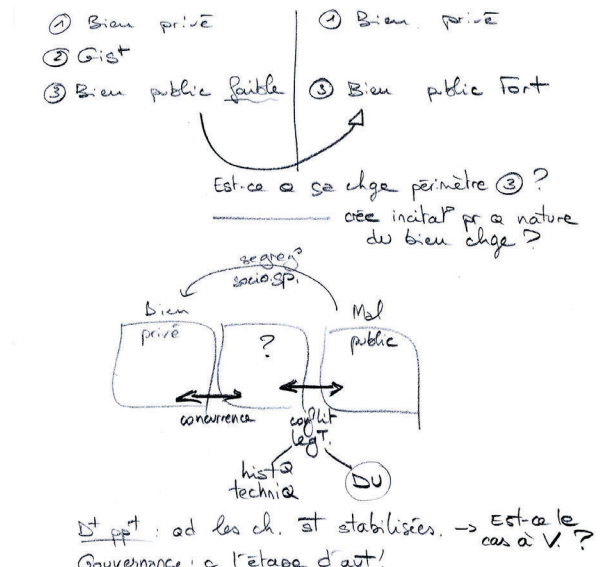 ① Bien privé
② Gist
③ Bien public faible
① Bien privé
③ Bien public Fort
Est-ce q ça chge périmètre ③ ?
crée incitat° pr q nature
du bien chge ?
segreg°
socio.sp.
Bien
privé
?
Mal
public
concurrence
conflit
legT.
histQ
techniQ
DU
Dt ppt : qd les ch. st stabilisées. -> Est-ce le
cas à V. ?
Gouvernance : c l'étape d'avt !